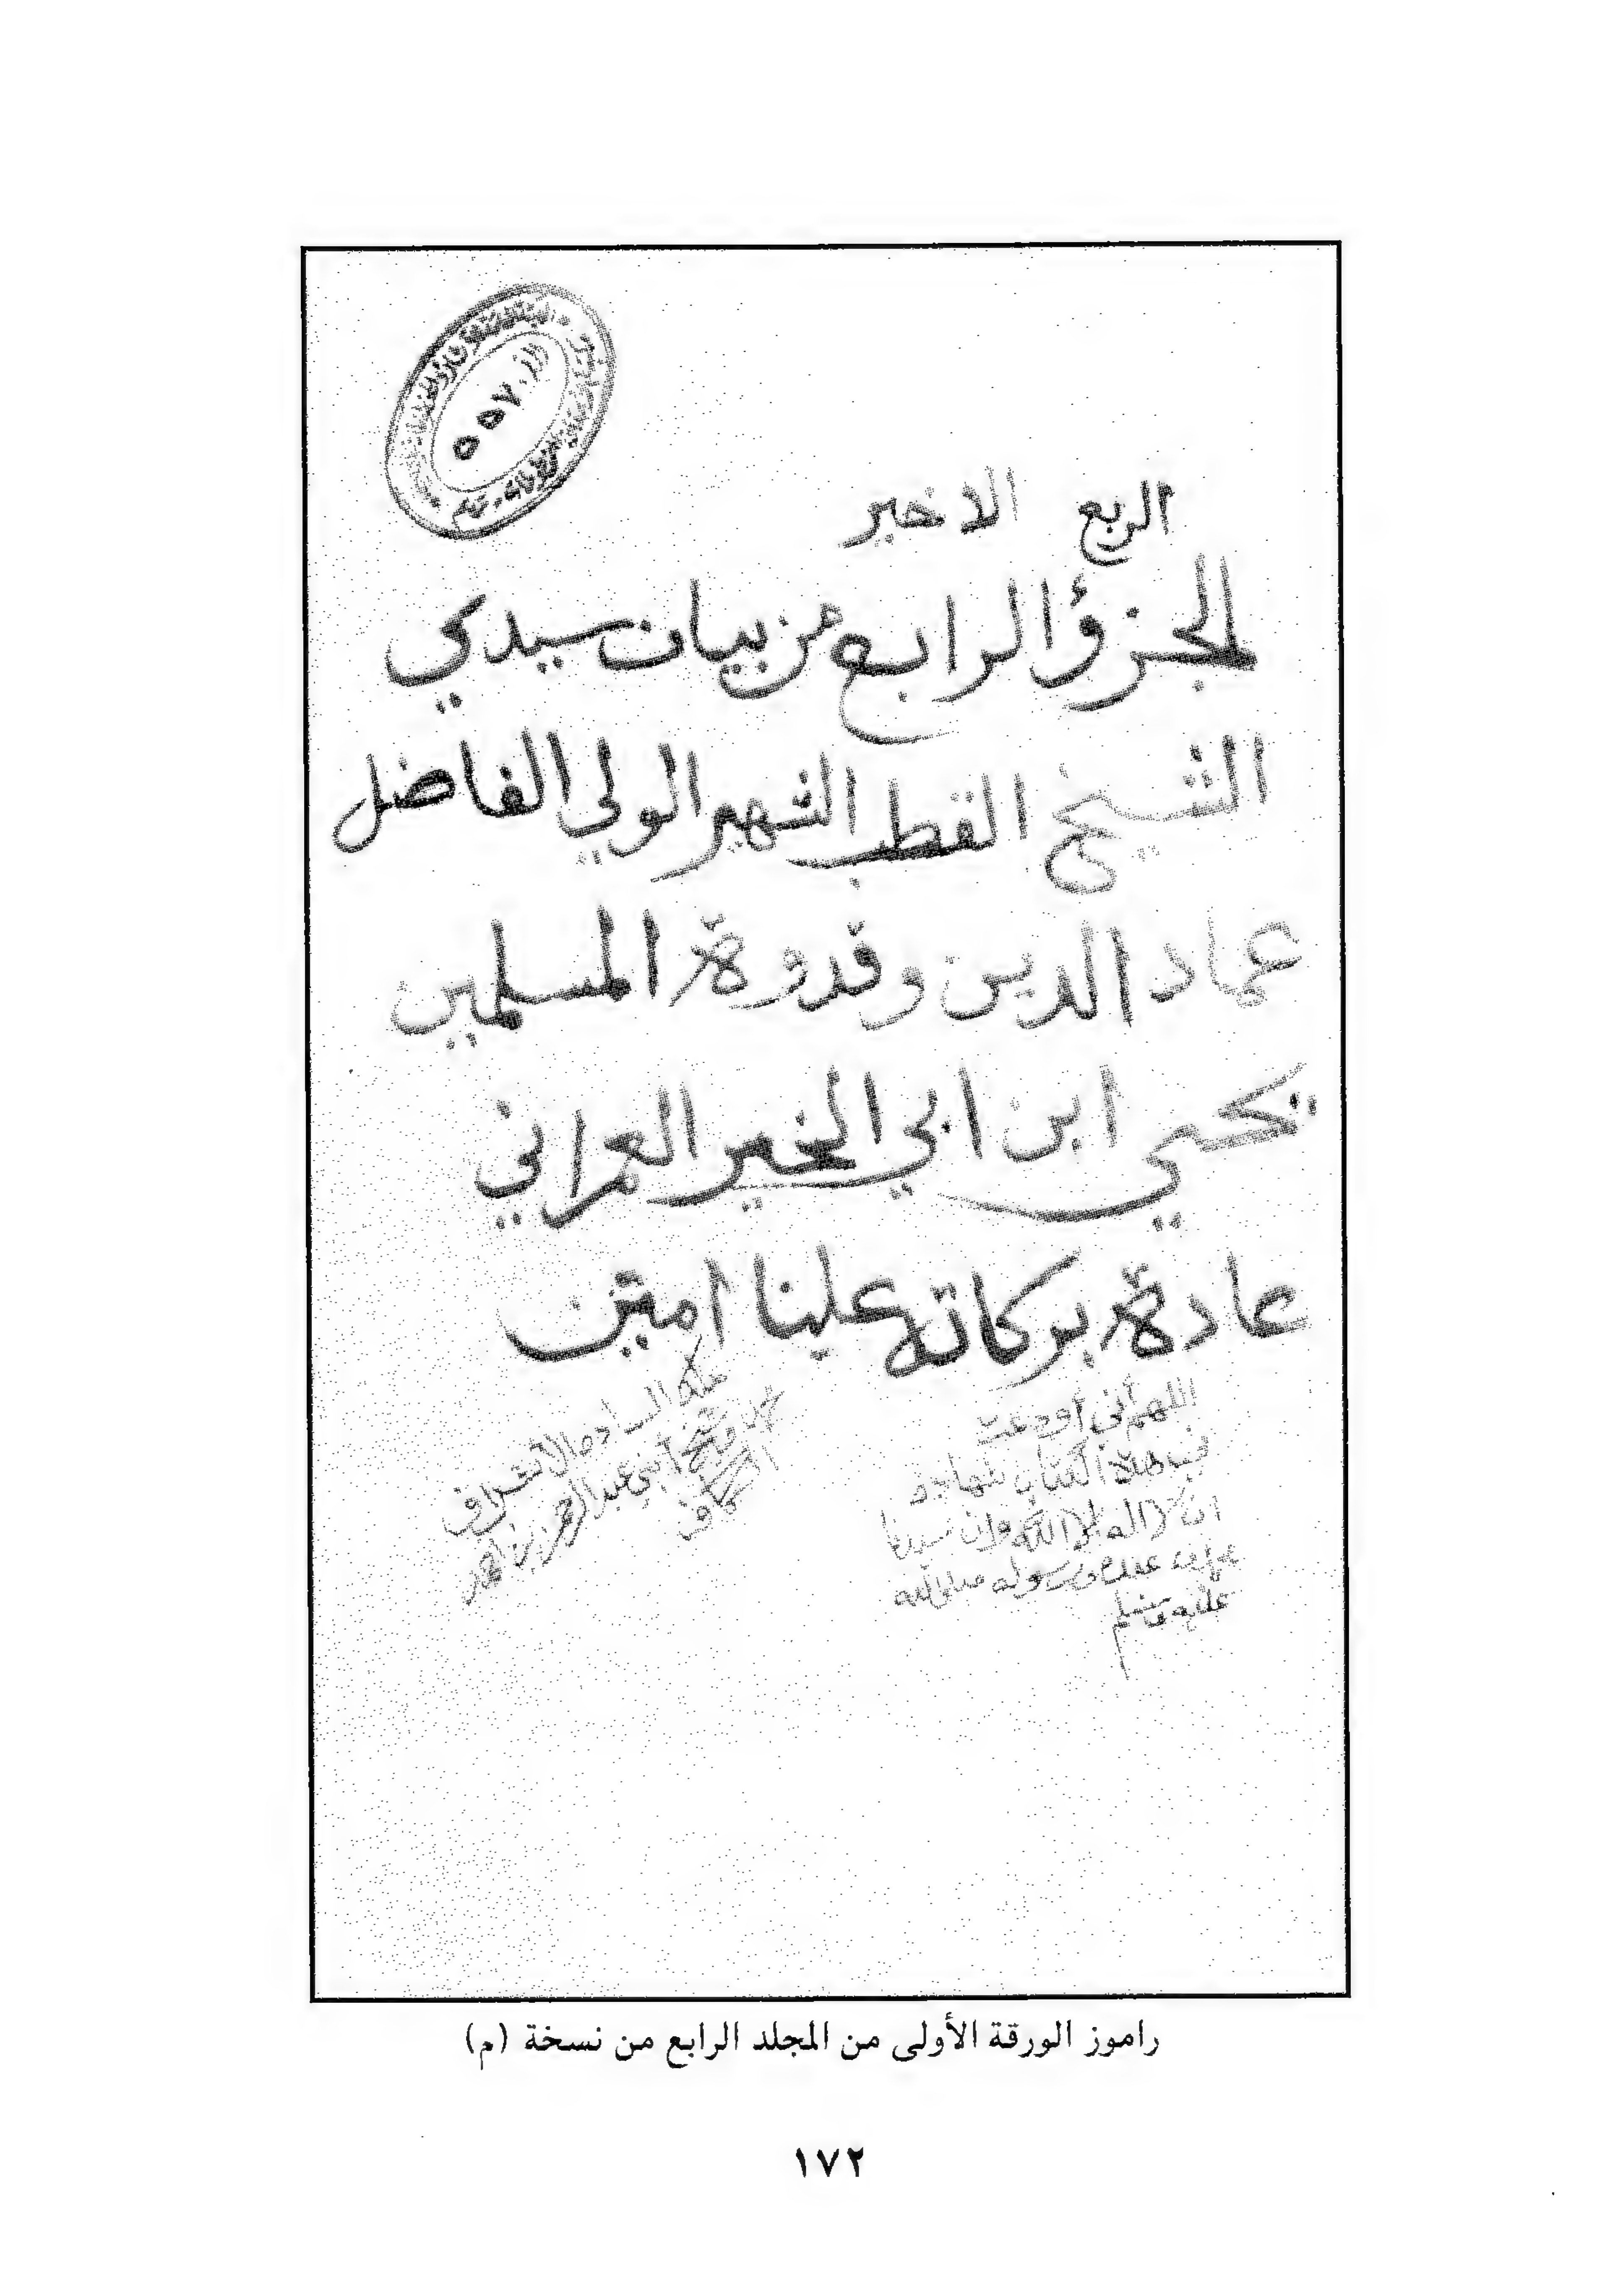 ٥٥٧
الربع الاخير
الجزؤ الرابع من بيان سيدي
الشيخ القطب الشهير الولي الفاضل
عماد الدين وقدوة المسلمين
يحيي ابن ابي الخير العمراني
عادة بركاته علينا امين
اللهم أني أودعت
في هذة الكتاب شهادة
ان لا اله إلا الله وان سيدنا
محمد عبده ورسوله صلى الله
عليه وسلم
السادة الاشراف
شيخ عبد الرحمن بن احمد
الكاف
راموز الورقة الأولى من المجلد الرابع من نسخة (م)
١٧٢